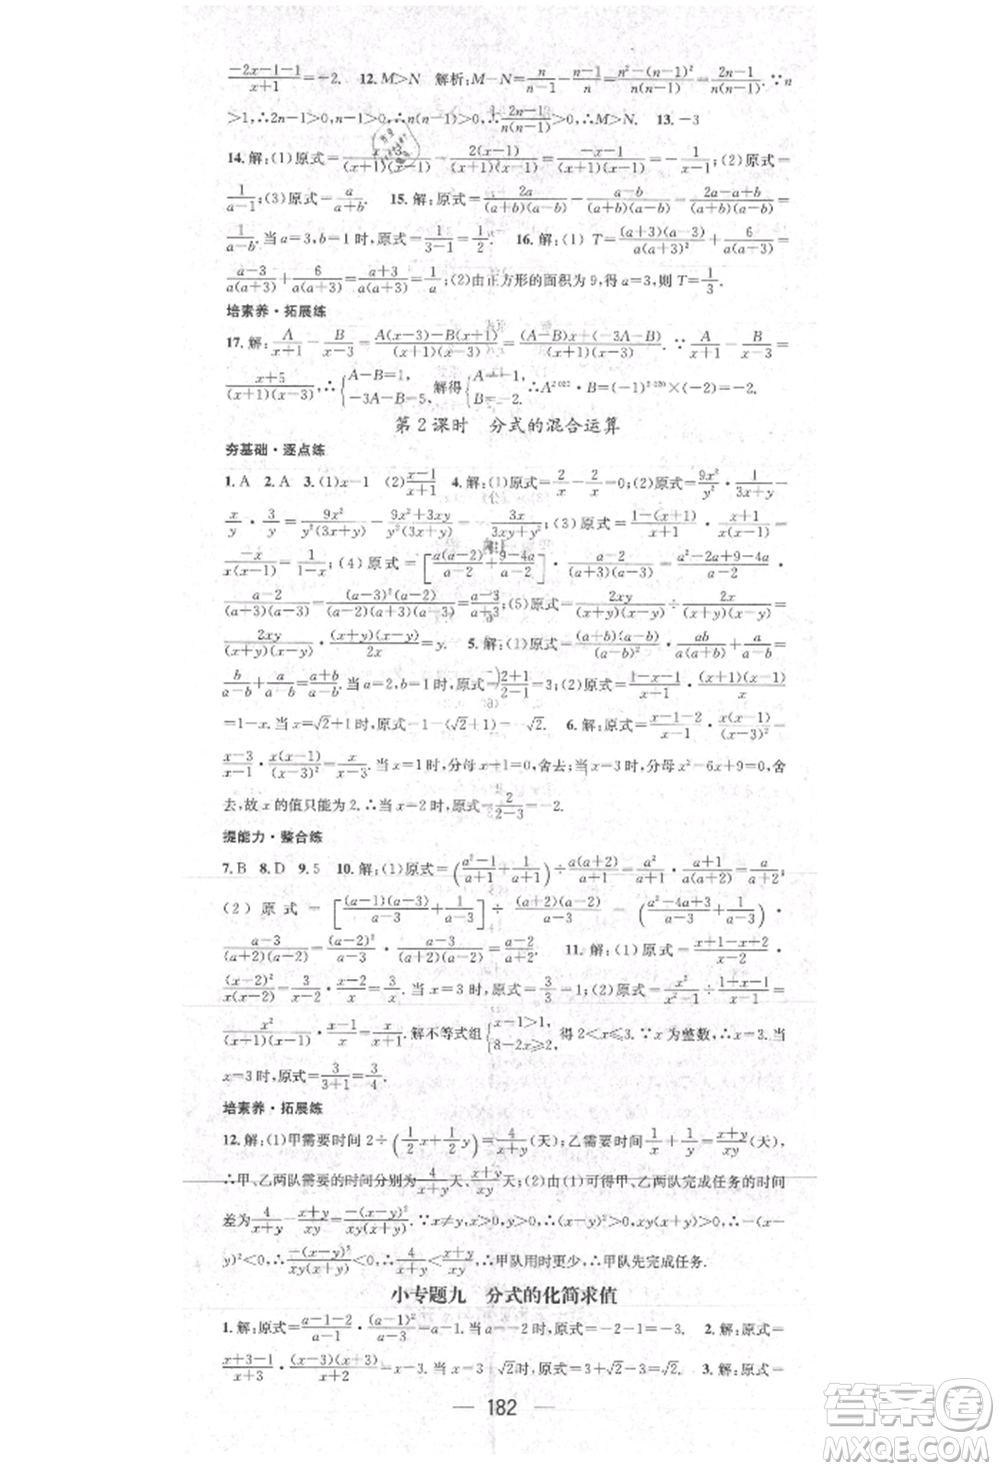 \frac{-2x-1-1}{x+1}=-2. 12. M>N 解析:M-N=\frac{n}{n-1}-\frac{n-1}{n}=\frac{n²-(n-1)²}{n(n-1)}=\frac{2n-1}{n(n-1)}. ∵n
>1,∴2n-1>0,n-1>0,∴n(n-1)>0,∴\frac{2n-1}{n(n-1)}>0,∴M>N. 13. -3
14. 解:(1)原式=\frac{x-3}{(x+1)(x-1)}-\frac{2(x-1)}{(x+1)(x-1)}=\frac{-x-1}{(x+1)(x-1)}=-\frac{1}{x-1};(2)原式=
\frac{1}{a-1};(3)原式=\frac{a}{a+b}. 15. 解:原式=\frac{2a}{(a+b)(a-b)}-\frac{a-b}{(a+b)(a-b)}=\frac{2a-a+b}{(a+b)(a-b)}=
\frac{1}{a-b}. 当a=3,b=1时,原式=\frac{1}{3-1}=\frac{1}{2}. 16. 解:(1) T=\frac{(a+3)(a-3)}{a(a+3)²}+\frac{6}{a(a+3)}=
\frac{a-3}{a(a+3)}+\frac{6}{a(a+3)}=\frac{a+3}{a(a+3)}=\frac{1}{a};(2)由正方形的面积为9,得a=3,则T=\frac{1}{3}.
培素养·拓展练
17. 解:\frac{A}{x+1}-\frac{B}{x-3}=\frac{A(x-3)-B(x+1)}{(x+1)(x-3)}=\frac{(A-B)x+(-3A-B)}{(x+1)(x-3)}. ∵\frac{A}{x+1}-\frac{B}{x-3}=
\frac{x+5}{(x+1)(x-3)},∴{A-B=1, -3A-B=5. 解得{A=-1, B=-2. ∴A²⁰²²·B=(-1)²⁰²⁰×(-2)=-2.
第2课时 分式的混合运算
夯基础·逐点练
1. A 2. A 3. (1)x-1 (2)\frac{x-1}{x+1} 4. 解:(1)原式=\frac{2}{x}-\frac{2}{x}=0;(2)原式=\frac{9x²}{y²}·\frac{1}{3x+y}+
\frac{x}{y}·\frac{3}{y}=\frac{9x²}{y²(3x+y)}=\frac{9x²+3xy}{y²(3x+y)}=\frac{3x}{y²};(3)原式=\frac{1-(x+1)}{x+1}·\frac{x+1}{x(x-1)}=
\frac{-x}{x(x-1)}=\frac{1}{1-x};(4)原式=[\frac{a(a-2)}{a-2}+\frac{9-4a}{a-2}]·\frac{a-2}{(a+3)(a-3)}=\frac{a²-2a+9-4a}{a-2}·
\frac{a-2}{(a+3)(a-3)}=\frac{(a-3)²(a-2)}{(a-2)(a+3)(a-3)}=\frac{a-3}{a+3};(5)原式=\frac{2xy}{(x+y)(x-y)}÷\frac{2x}{(x+y)(x-y)}=
\frac{2xy}{(x+y)(x-y)}·\frac{(x+y)(x-y)}{2x}=y. 5. 解:(1)原式=\frac{(a+b)(a-b)}{a²}·\frac{ab}{(a-b)²}+\frac{a}{a-b}=
\frac{b}{a-b}+\frac{a}{a-b}=\frac{a+b}{a-b}. 当a=2,b=1时,原式=\frac{2+1}{2-1}=3;(2)原式=\frac{1-x-1}{x+1}·\frac{(x+1)(x-1)}{x}
=1-x. 当x=√2+1时,原式=1-(√2+1)=-√2. 6. 解:原式=\frac{x-1-2}{x-1}·\frac{x(x-1)}{(x-3)²}=
\frac{x-3}{x-1}·\frac{x(x-1)}{(x-3)²}=\frac{x}{x-3}. 当x=1时,分母x-1=0,舍去;当x=3时,分母x²-6x+9=0,舍
去,故x的值只能为2. ∴当x=2时,原式=\frac{2}{2-3}=-2.
提能力·整合练
7. B 8. D 9. 5 10. 解:(1)原式=(\frac{a²-1}{a+1}+\frac{1}{a+1})÷\frac{a(a+2)}{a+1}=\frac{a²}{a+1}·\frac{a+1}{a(a+2)}=\frac{a}{a+2};
(2)原式=[\frac{(a-1)(a-3)}{a-3}+\frac{1}{a-3}]÷\frac{(a+2)(a-2)}{a-3}=(\frac{a²-4a+3}{a-3}+\frac{1}{a-3})·
\frac{a-3}{(a+2)(a-2)}=\frac{(a-2)²}{a-3}·\frac{a-3}{(a+2)(a-2)}=\frac{a-2}{a+2}. 11. 解:(1)原式=\frac{x+1-x+2}{x-2}·
\frac{(x-2)²}{x(x-2)}=\frac{3}{x-2}·\frac{x-2}{x}=\frac{3}{x}. 当x=3时,原式=\frac{3}{3}=1;(2)原式=\frac{x²}{x²-1}÷\frac{x-1+1}{x-1}=
\frac{x²}{(x+1)(x-1)}·\frac{x-1}{x}=\frac{x}{x+1}. 解不等式组{x-1>1, 8-2x≥2. 得2<x≤3. ∵x为整数,∴x=3. 当
x=3时,原式=\frac{3}{3+1}=\frac{3}{4}.
培素养·拓展练
12. 解:(1)甲需要时间2÷(\frac{1}{2}x+\frac{1}{2}y)=\frac{4}{x+y}(天);乙需要时间\frac{1}{x}+\frac{1}{y}=\frac{x+y}{xy}(天),
∴甲、乙两队需要的时间分别为\frac{4}{x+y}天、\frac{x+y}{xy}天;(2)由(1)可得甲、乙两队完成任务的时间
差为\frac{4}{x+y}-\frac{x+y}{xy}=\frac{-(x-y)²}{xy(x+y)}. ∵x≠y,x>0,y>0,∴(x-y)²>0,xy(x+y)>0,∴-(x-
y)²<0,∴\frac{-(x-y)²}{xy(x+y)}<0,∴\frac{4}{x+y}<\frac{x+y}{xy},∴甲队用时更少,∴甲队先完成任务.
小专题九 分式的化简求值
1. 解:原式=\frac{a-1-2}{a-1}·\frac{(a-1)²}{a-3}=a-1. 当a=-2时,原式=-2-1=-3. 2. 解:原式=
\frac{x+3-1}{x+3}·\frac{(x+3)²}{x+2}=x+3. 当x=√2时,原式=3+√2=3+√2. 3. 解:原式=
182
答案圈
MXQE.COM